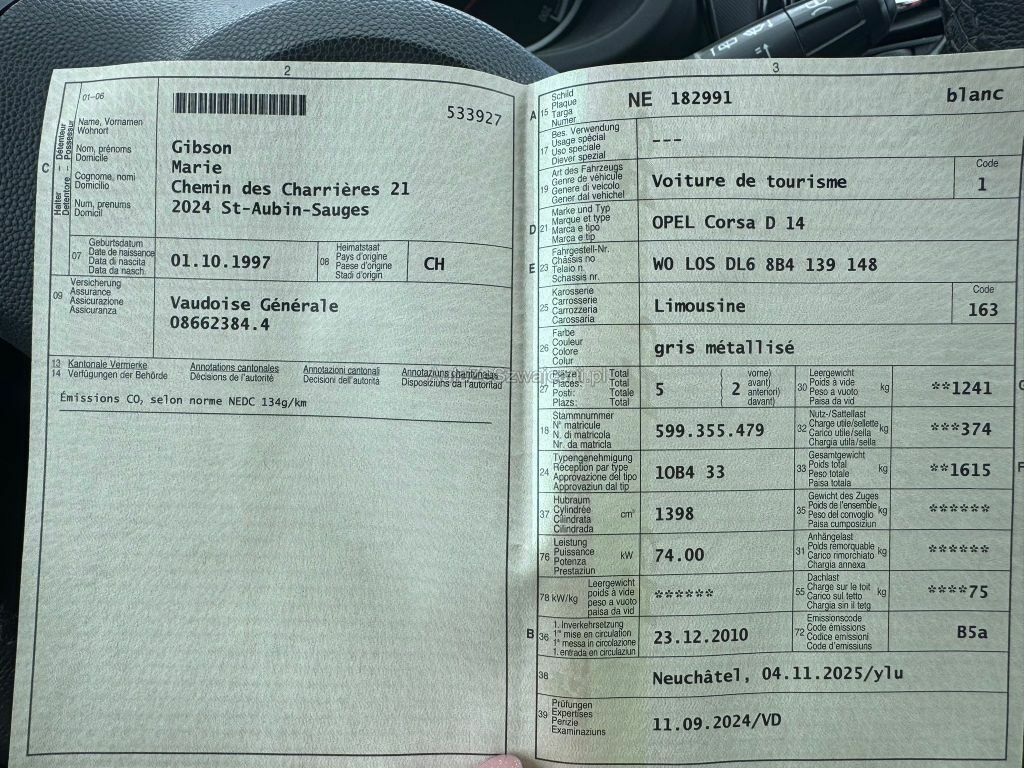 2
01-06
533927
C
Halter – Détenteur
Detentore – Possessur
Name, Vornamen
Wohnort
Nom, prénoms
Domicile
Cognome, nomi
Domicilio
Num, prenums
Domicil
Gibson
Marie
Chemin des Charrières 21
2024 St-Aubin-Sauges
07
Geburtsdatum
Date de naissance
Data di nascita
Data da nasch.
01.10.1997
08
Heimatstaat
Pays d'origine
Paese d'origine
Stadi d'origin
CH
09
Versicherung
Assurance
Assicurazione
Assicuranza
Vaudoise Générale
08662384.4
13 Kantonale Vermerke
14 Verfügungen der Behörde
Annotations cantonales
Décisions de l'autorité
Annotazioni cantonali
Decisioni dell autorità
Annotaziuns chantunalas
Disposiziuns da l'autoritad
Émissions CO, selon norme NEDC 134g/km
3
A 15
Schild
Plaque
Targa
Numer
NE 182991 blanc
17
Bes. Verwendung
Usage spécial
Uso speciale
Diever spezial
---
19
Art des Fahrzeugs
Genre de véhicule
Genere di veicolo
Gener dal vehichel
Voiture de tourisme
Code
1
D 21
Marke und Typ
Marque et type
Marca e tipo
Marca e tip
OPEL Corsa D 14
E 23
Fahrgestell-Nr.
Châssis no
Telaio n.
Schassis nr.
WO LOS DL6 8B4 139 148
25
Karosserie
Carrosserie
Carrozzeria
Carossaria
Limousine
Code
163
26
Farbe
Couleur
Colore
Colur
gris métallisé
27
Plätze: Total
Places: Total
Posti: Totale
Plazs: Total
5
2
vorne)
avant)
anteriori)
davant)
30
Leergewicht
Poids à vide
Peso a vuoto
Paisa da vid
kg
**1241
G
18
Stammnummer
N° matricule
N. di matricola
Nr. da matricla
599.355.479
32
Nutz-/Sattellast
Charge utile/sellette
Carico utile/sella
Chargia utila/sella
kg
***374
24
Typengenehmigung
Réception par type
Approvazione del tipo
Approvaziun dal tip
1OB4 33
33
Gesamtgewicht
Poids total
Peso totale
Paisa totala
kg
**1615
F
37
Hubraum
Cylindrée
Cilindrata
Cilindrada
cm³
1398
35
Gewicht des Zuges
Poids de l'ensemble
Peso del convoglio
Paisa cumposiziun
kg
******
76
Leistung
Puissance
Potenza
Prestaziun
kW
74.00
31
Anhängelast
Poids remorquable
Carico rimorchiato
Chargia annexa
kg
******
78 kW/kg
Leergewicht
poids à vide
peso a vuoto
paisa da vid
******
55
Dachlast
Charge sur le toit
Carico sul tetto
Chargia sin il tetg
kg
****75
B 36
1. Inverkehrsetzung
1re mise en circulation
1a messa in circolazione
1. entrada en circulaziun
23.12.2010
72
Emissionscode
Code émissions
Codice emissioni
Code d'emissiuns
B5a
38
Neuchâtel, 04.11.2025/ylu
39
Prüfungen
Expertises
Perizie
Examinaziuns
11.09.2024/VD